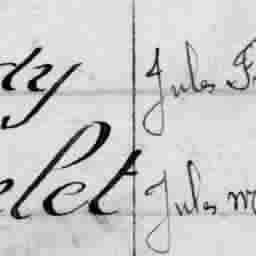 dy Jules F
elet Jules m